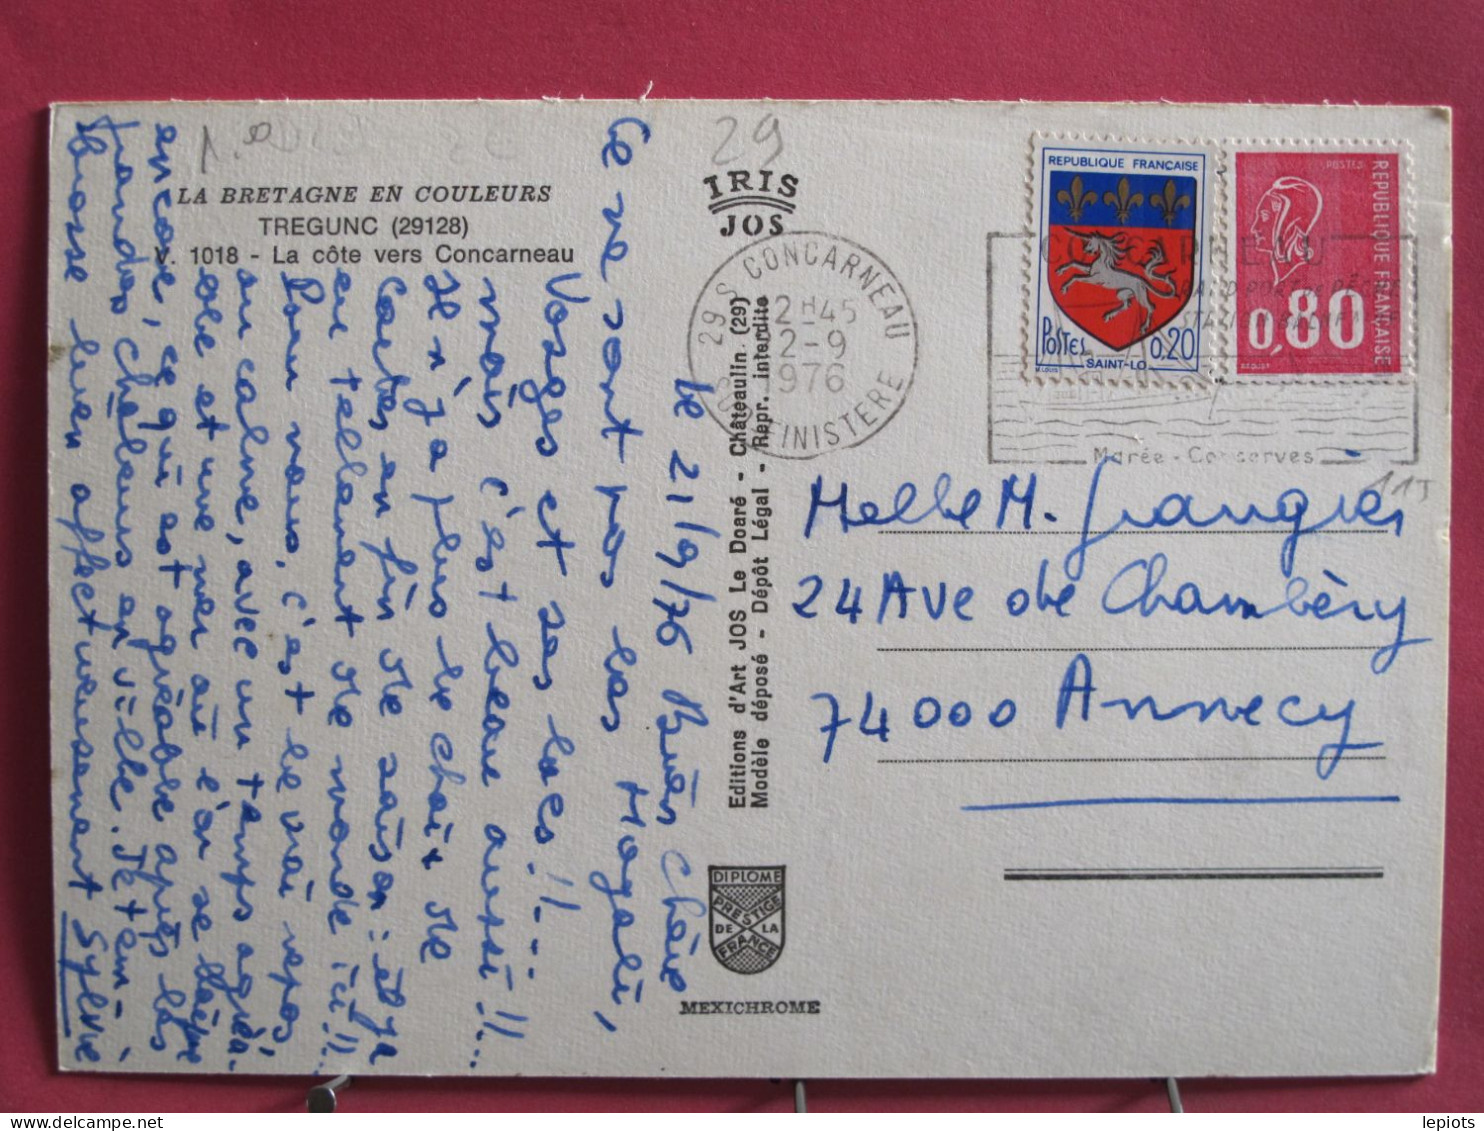 29
LA BRETAGNE EN COULEURS
TREGUNC (29128)
V. 1018 - La côte vers Concarneau
IRIS
JOS
29 S CONCARNEAU
12H45
2-9
1976
SUD FINISTERE
REPUBLIQUE FRANÇAISE
POSTES
0,20
SAINT-LO
POSTES
REPUBLIQUE FRANÇAISE
0,80
CONCARNEAU
Marée - Conserves
115
Melle M. Grangier
24 Ave de Chambéry
74000 Annecy
Editions d'Art JOS Le Doaré - Châteaulin (29)
Modèle déposé - Dépôt Légal - Repr. interdite
DIPLOME
PRESTIGE
DE LA
FRANCE
MEXICHROME
le 21/9/76 Bien chère
Magali,
Ce ne sont pas les
Vosges et ses lacs!!...
mais c'est beau aussi!!...
Il n'y a plus le choix de
cartes en fin de saison: il y a
eu tellement de monde ici!!
Pour nous, c'est le vrai repos,
au calme, avec un temps agréa-
ble et une mer où l'on se baigne
encore, ce qui est agréable après les
grandes chaleurs en ville. T'em-
brasse bien affectueusement Sylvie
lepiots